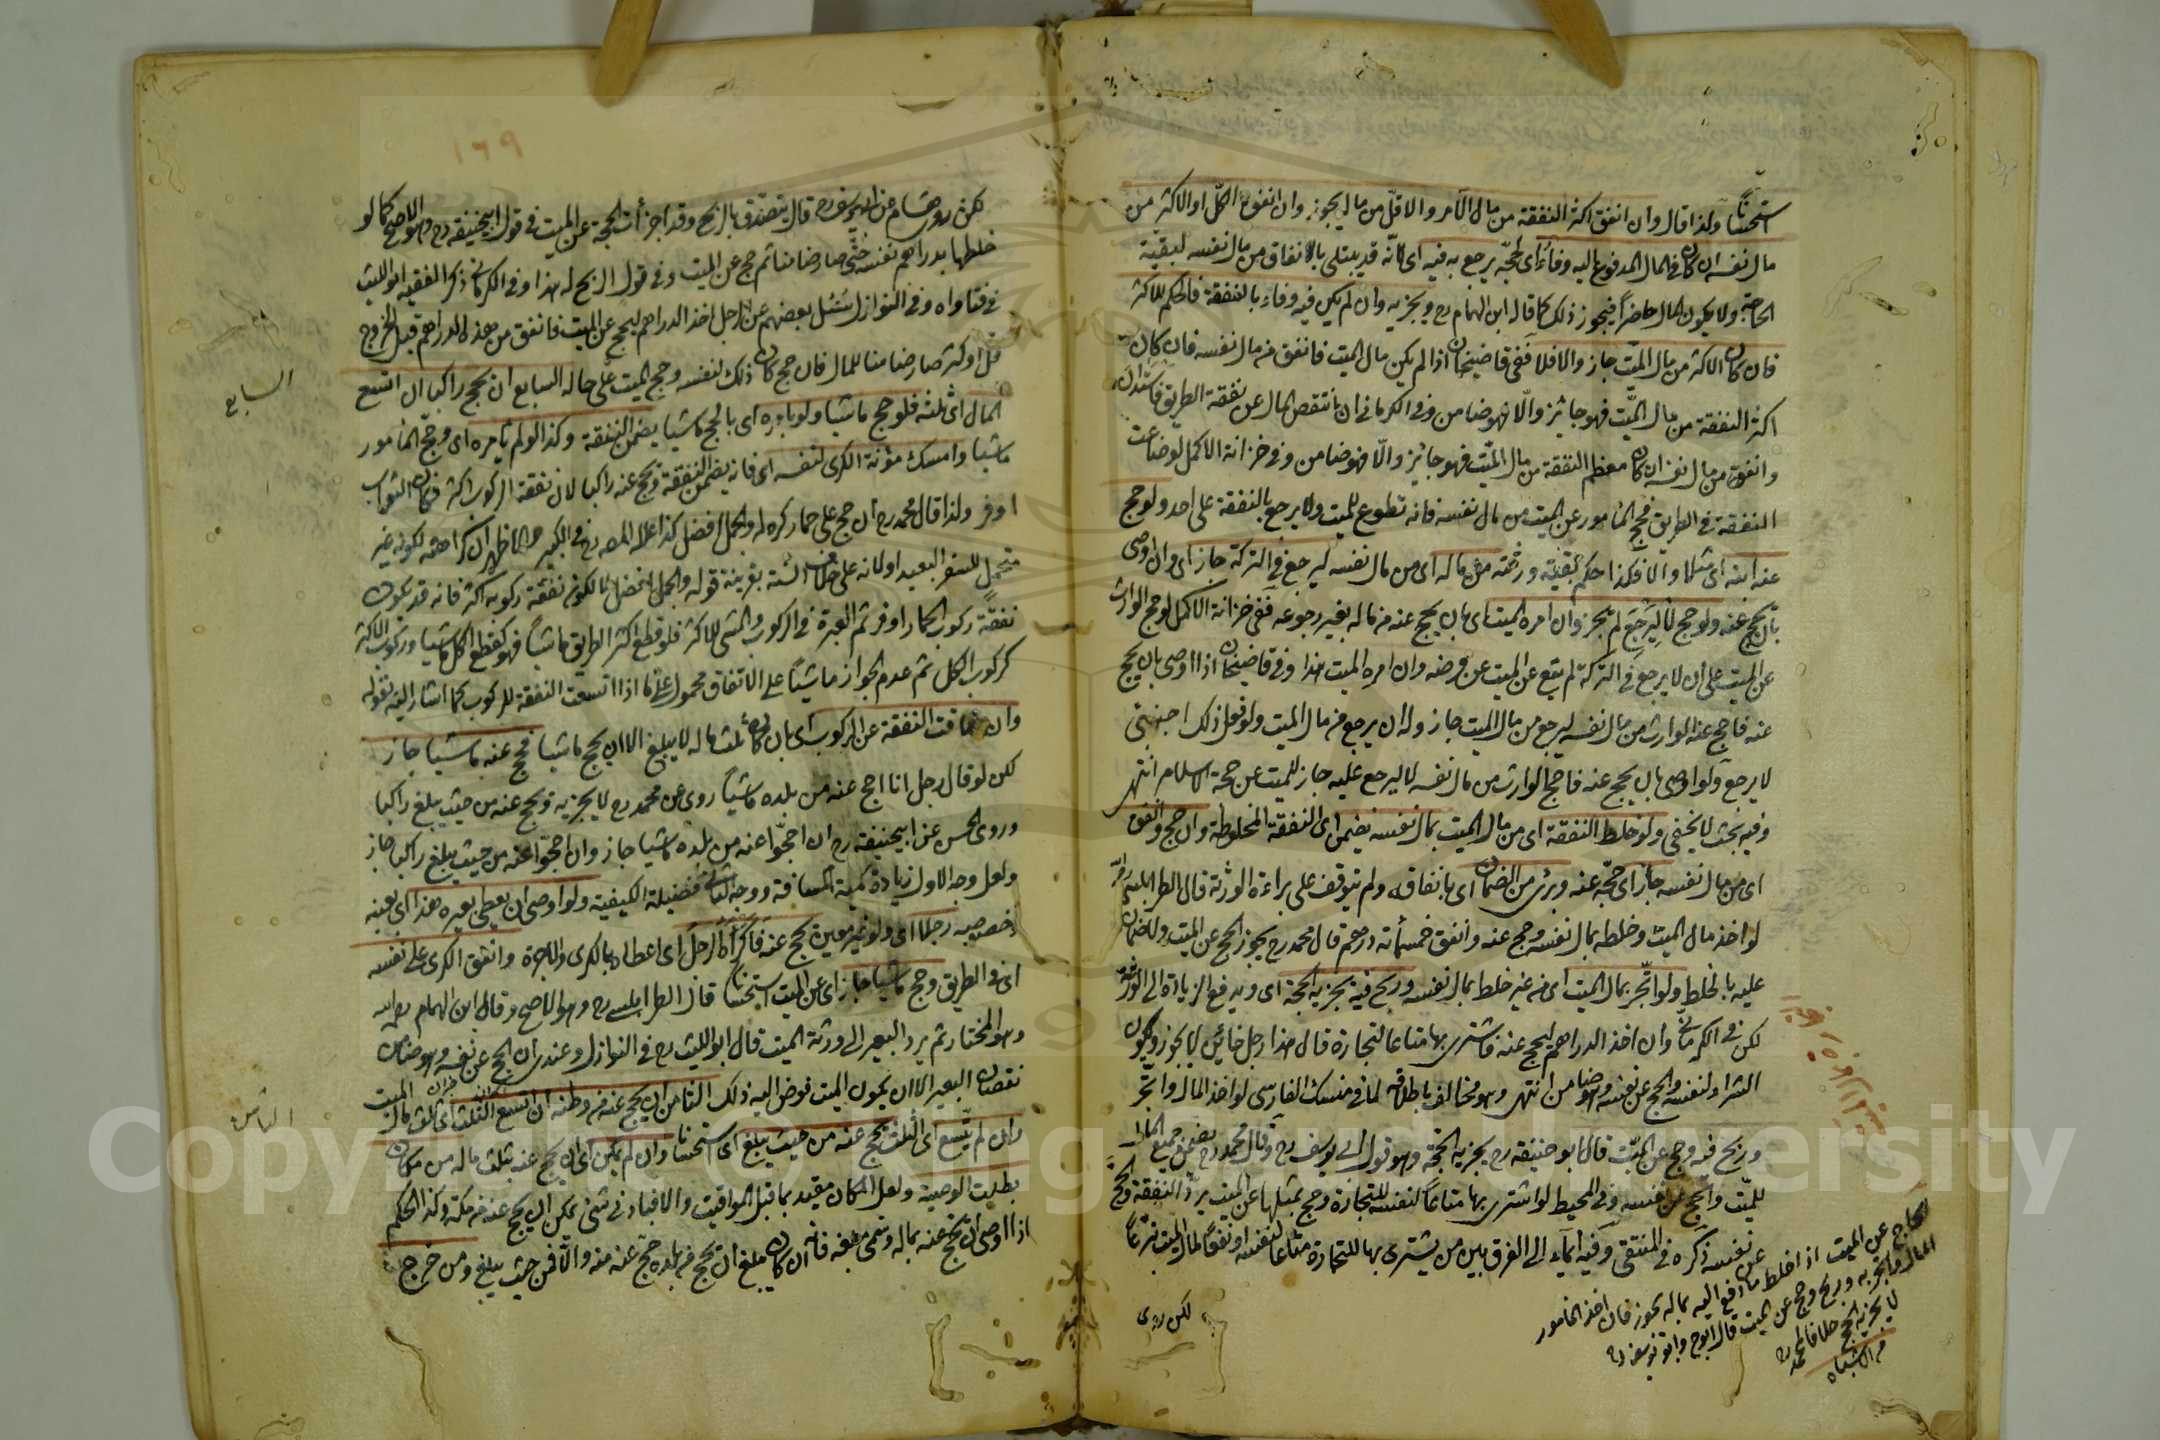 استحسانا ولذا قال وان انفق اكثر النفقة من مال الآمر والاقل من ماله يجوز وان انفق الكل او الاكثر من
مال نفسه ان كان في المال المدفوع اليه وفاء اي لحجه يرجع به فيه اي لانه قد يبتلى بالانفاق من مال نفسه لبقية
الحاجة ولا يكون المال حاضرا فيجوز ذلك كما قاله ابن الهمام رح ويجزيه وان لم يكن فيه وفاء بالنفقة فالحكم للاكثر
فان كان الاكثر من مال الميت جاز والا فلا ففي قاضيخان اذا لم يكن مال الميت فانفق من مال نفسه فان كان
اكثر النفقة من مال الميت فهو جائز والا فهو ضامن وفي الكرماني ان انتقص المال عن نفقة الطريق فاستدان
وانفق من مال نفسه ان كان معظم النفقة من مال الميت فهو جائز والا فهو ضامن وفي خزانة الاكمل لو ضاعت
النفقة في الطريق فحج المأمور عن الميت من مال نفسه فانه تطوع للميت ولا يرجع بالنفقة على احد ولو حج
عنه ابنه اي مثلا والا فكذا حكم بقية ورثته من ماله اي من مال نفسه ليرجع في التركة جاز اي وان اوصى
بان يحج عنه ولو حج لا ليرجع لم يجز وان امره الميت اي بان يحج عنه من ماله بغير رجوعه ففي خزانة الاكمل لو حج الوارث
عن الميت على ان لا يرجع في التركة لم يقع عن الميت عن فرضه وان امره الميت هذا وفي قاضيخان اذا اوصى بان يحج
عنه فاحج عنه الوارث من مال نفسه ليرجع من مال الميت جاز وله ان يرجع في مال الميت ولو فعل ذلك اجنبي
لا يرجع ولو اوصى بان يحج عنه فاحج الوارث من مال نفسه لا ليرجع عليه جاز للميت عن حجة الاسلام انتهى
وفيه بحث لا يخفى ولو خلط النفقة اي من مال الميت بمال نفسه يضمن اي النفقة المخلوطة وان حج وانفق
اي من مال نفسه جاز اي حجه عنه وبرئ من الضمان اي بانفاقه ولم يتوقف على براءة الورثة قال الطرابلسي رح
لو اخذ مال الميت وخلطه بمال نفسه وحج عنه وانفق خمسمائة درهم قال محمد رح يجوز الحج عن الميت ولا ضمان
عليه بالخلط ولو اتجر بمال الميت اي من غير خلط بمال نفسه وربح فيه يجزيه الحجة اي ويدفع الزيادة الى الورثة
لكن في الكرماني وان اخذ الدراهم ليحج عنه فاشترى بها متاعا لتجارة قال هذا رجل خائن لا يجوز ويكون
الشراء لنفسه والحج عن نفسه وهو ضامن انتهى وهو مخالف باطلاقه لما في منسك الفارسي لو اخذ المال واتجر
وربح فيه وحج عن الميت قال ابو حنيفة رح يجزيه الحجة وهو قول ابي يوسف رح وقال محمد رح يضمن جميع المال
للميت والحج عن نفسه وفي المحيط لو اشترى بها متاعا لنفسه للتجارة وحج بمثلها عن الميت يرد النفقة والحج
عن نفسه ذكره في المنتقى وفيه ايماء الى الفرق بين من يشترى بها للتجارة متاعا لنفسه او نفعا لمال الميت تبرعا
لكن روى
الحاج عن الميت اذا خلط ما دفع اليه بماله يجوز فان اخذ المأمور
المال واتجر به وربح وحج عن الميت قال ابو ح وابو يوسف رح
لا يجزيه الحج خلافا لمحمد رح
من الاشباه
١٦٩
لكن روى هشام عن ابي يوسف رح قال يتصدق بالربح وقد اجزأت الحجة عن الميت في قول ابي حنيفة رح وهو الاصح كما لو
خلطها بدراهم نفسه حتى صار ضامنا ثم حج عن الميت وفي قول الربح له هذا وفي الكرماني ذكر الفقيه ابو الليث
في فتاواه وفي النوازل سئل بعضهم عن رجل اخذ الدراهم ليحج عن الميت فانفق من هذه الدراهم قبل الخروج
قل او كثر صار ضامنا للمال فان حج كان ذلك لنفسه وحج الميت على حاله السابع ان يحج راكبا ان اتسع
المال اي ثلثه فلو حج ماشيا ولو بامره اي بالحج ماشيا يضمن النفقة وكذا لو لم يأمره اي وحج المأمور
ماشيا وامسك مؤنة الكرى لنفسه اي فانه يضمن النفقة ويحج عنه راكبا لان نفقة الركوب اكثر فكان الثواب
اوفر ولذا قال محمد رح ان حج على حمار كره له والجمل افضل كذا علله المص رح في الكبير والظاهر ان كراهته لكونه غير
متحمل للسفر البعيد او لانه على خلاف السنة بقرينة قوله والجمل افضل لا لكون نفقة ركوبه اكثر فانه قد يكون
نفقة ركوب الحمار اوفر ثم العبرة في الركوب والمشي للاكثر فلو قطع اكثر الطريق ماشيا فهو كقطع الكل ماشيا وركوب الاكثر
كركوب الكل ثم عدم الجواز ماشيا على الاتفاق محمول على ما اذا اتسعت النفقة للركوب كما اشار اليه بقوله
وان ضاقت النفقة عن الركوب اي بان كان ثلث ماله لا يبلغ الا ان يحج ماشيا فحج عنه ماشيا جاز
لكن لو قال رجل انا احج عنه من بلده ماشيا روى عن محمد رح لا يجزيه ويحج عنه من حيث يبلغ راكبا
وروى الحسن عن ابي حنيفة رح ان احجوا عنه من بلده ماشيا جاز وان احجوا عنه من حيث يبلغ راكبا جاز
ولعل وجه الاول زيادة كمية المسافة ووجه الثاني فضيلة الكيفية ولو اوصى ان يعطى بعيره هذا اي بعينه
رجلا اي ولو غير معين يحج عنه فاكراه الرجل اي اعطاه بالكرى والاجرة وانفق الكرى على نفسه
اي في الطريق وحج ماشيا جاز اي عن الميت استحسانا قال الطرابلسي رح وهو الاصح وقال ابن الهمام رحمه الله
وهو المختار ثم يرد البعير الى ورثة الميت قال ابو الليث رح في النوازل وعندي ان الحج عن نفسه وهو ضامن
نقصان البعير الا ان يكون الميت فوض اليه ذلك الثامن ان يحج عنه من وطنه ان اتسع الثلث اي ثلث مال الميت
وان لم يتسع اي الثلث يحج عنه من حيث يبلغ اي استحسانا وان لم يمكن اي ان يحج عنه بثلث ماله من مكان
بطلت الوصية ولعل المكان مقيد بما قبل المواقيت والا فبادنى شئ يمكن ان يحج عنه من مكة وكذا الحكم
اذا اوصى ان يحج عنه بماله وسمى مبلغه فانه ان كان يبلغ ان يحج من بلده حج عنه منه والا فمن حيث يبلغ ومن خرج
السابع
الثامن
Copyright © King Saud University